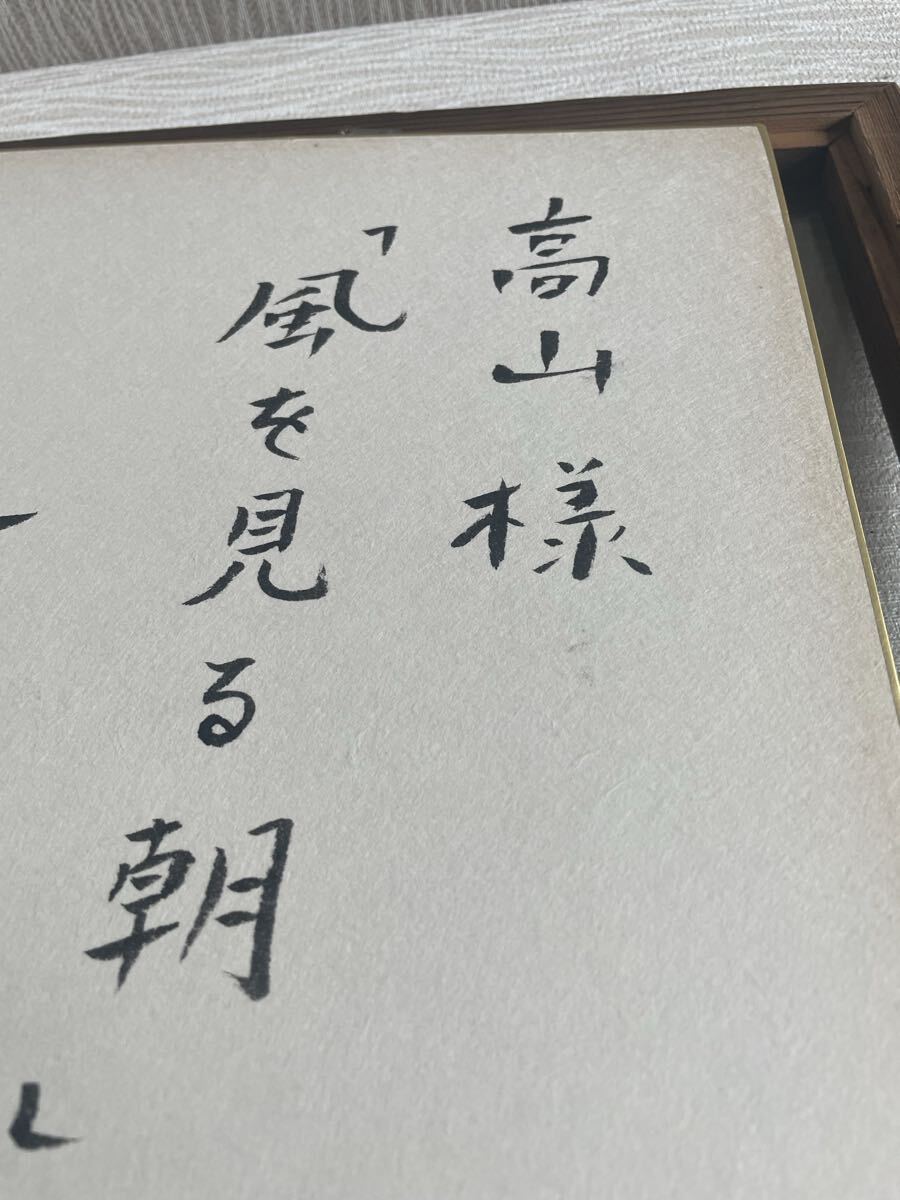 高山様
「風を見る朝